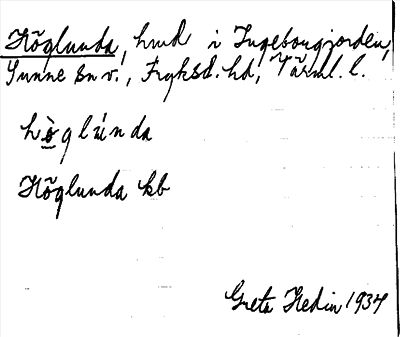 Höglunda, hmd i Ingebougjorden,
Sunne sn v., Fryksd. hd, Värml. l.
hö̀glúnda
Höglunda kb
Greta Hedin 1934